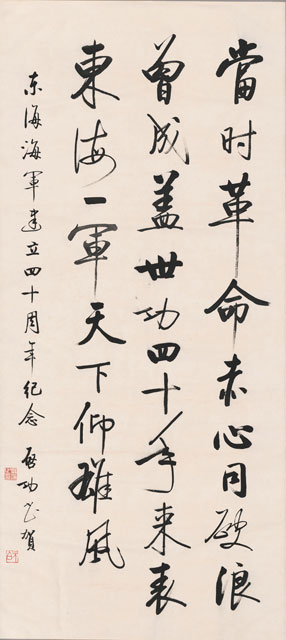 當时革命赤心同破浪
曾成盖世功四十年来表
東海一軍天下仰雄風
东海海軍建立四十周年纪念 啟功 贺